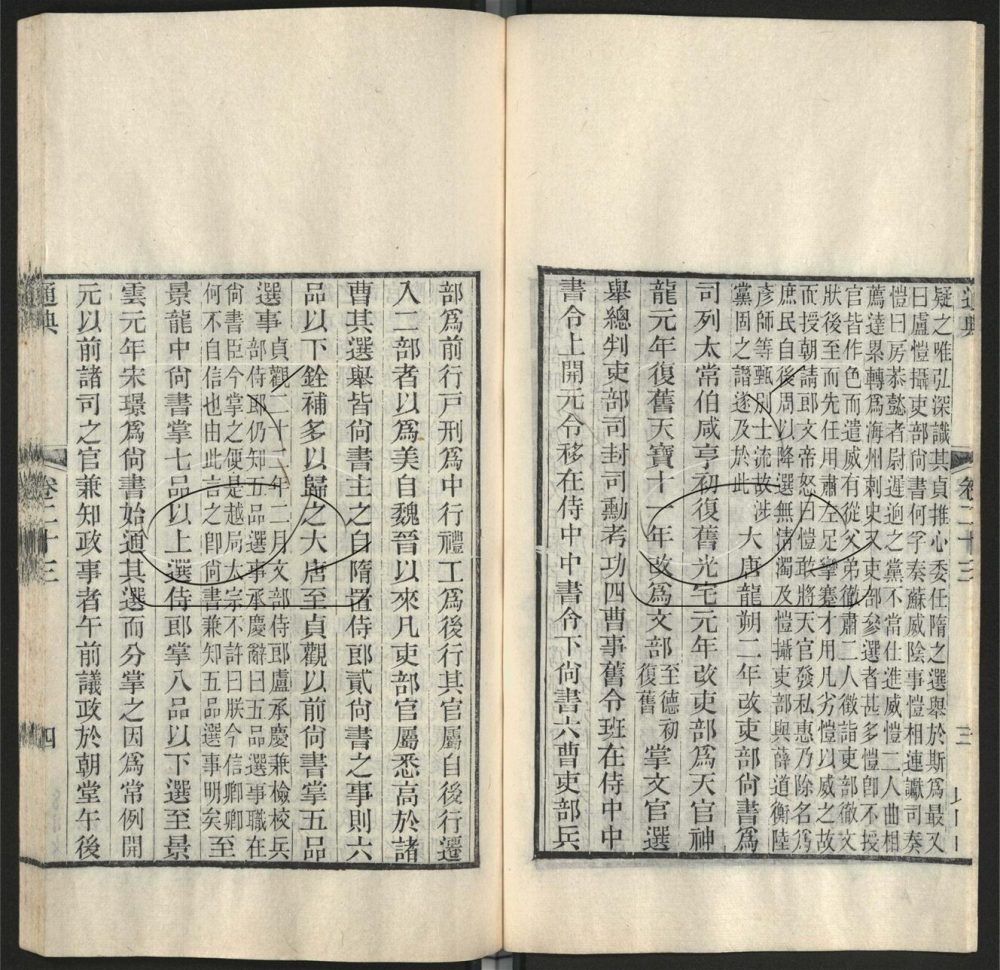 通典 卷二十三 三
疑之唯弘深識其貞推心委任隋之選舉於斯爲最又
曰盧愷攝吏部尚書何孚奏蘇威陰事愷相連讞司奏
愷曰房恭懿者尉遲迥之黨不當仕進威愷二人曲相
薦達累轉爲海州刺史又吏部參選者甚多愷卽不授
官皆作色而遣威有從父弟徹肅二人徵詣吏部徹文
狀後至而先任用肅左足攣蹇才用凡劣愷以威之故
而授朝請郎文帝怒曰愷敢將天官發私惠乃除名爲
庶民自後周以降選無清濁及愷攝吏部與薛道衡陸
彥師等甄別士流故涉
黨固之譖遂及於此 大唐龍朔二年改吏部尚書爲
司列太常伯咸亨初復舊光宅元年改吏部爲天官神
龍元年復舊天寶十一年改爲文部至德初復舊掌文官選
舉總判吏部司封司勳考功四曹事舊令班在侍中中
書令上開元令移在侍中中書令下尚書六曹吏部兵
部爲前行戸刑爲中行禮工爲後行其官屬自後行遷
入二部者以爲美自魏晉以來凡吏部官屬悉高於諸
曹其選舉皆尚書主之自隋置侍郎貳尚書之事則六
品以下銓補多以歸之大唐至貞觀以前尚書掌五品
選事貞觀二十二年二月文部侍郎盧承慶兼檢校兵
部侍郎仍知五品選事承慶辭曰五品選事職在
尙書臣今掌之便是越局太宗不許曰朕今信卿卿
何不自信也由此言之卽尙書兼知五品選事明矣至
景龍中尙書掌七品以上選侍郎掌八品以下選至景
雲元年宋璟爲尙書始通其選而分掌之因爲常例開
元以前諸司之官兼知政事者午前議政於朝堂午後
通典 卷二十三 四